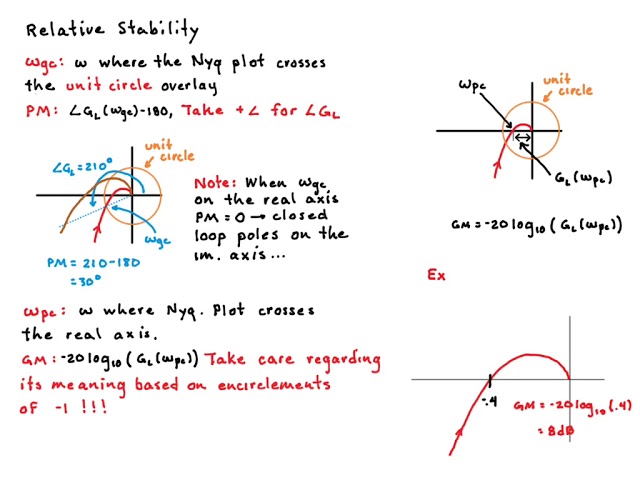 Relative Stability
ωgc: ω where the Nyq plot crosses
the unit circle overlay
PM: ∠GL(ωgc)-180, Take +∠ for ∠GL
∠GL=210°
unit
circle
ωgc
PM = 210-180
=30°
Note: When ωgc
on the real axis
PM = 0 → closed
loop poles on the
im. axis...
ωpc: ω where Nyq. Plot crosses
the real axis.
GM: -20log10(GL(ωpc)) Take care regarding
its meaning based on encirclements
of -1 !!!
ωpc
unit
circle
GL(ωpc)
GM = -20log10(GL(ωpc))
Ex
-.4
GM = -20log10(.4)
= 8dB